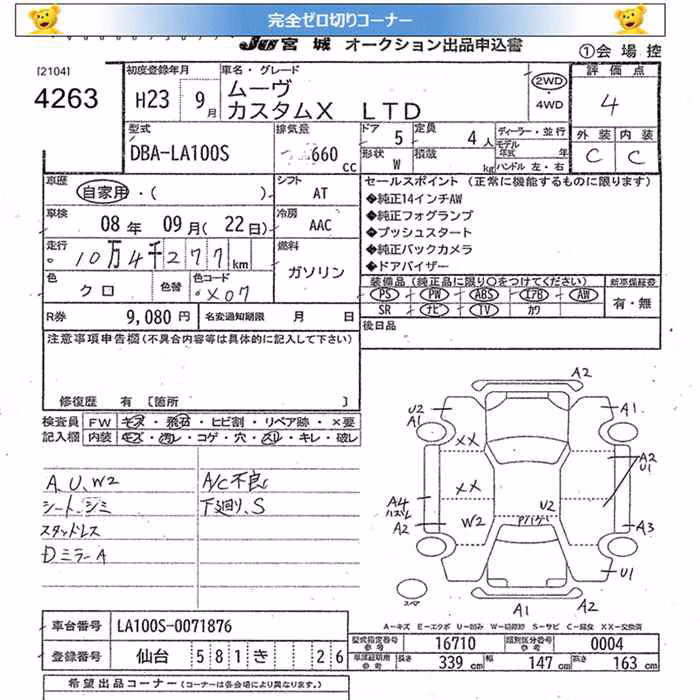 完全ゼロ切りコーナー
JU宮城 オークション出品申込書
①会場控
[2104]
4263
初度登録年月
H23 9月
車名・グレード
ムーヴ
カスタムX LTD
2WD
・
4WD
評価点
4
外装 内装
C C
型式
DBA-LA100S
排気量
660 CC
ドア 5 定員 4人
形状 W 積載 kg
ディーラー・並行
モデル年式 年
ハンドル 左・右
車歴 自家用・( )
シフト AT
車検 08年 09月(22日)
冷房 AAC
走行 10万4千277km
燃料 ガソリン
色 クロ 色替 色コード X07
R券 9,080円 名変通知期限 月 日
セールスポイント (正常に機能するものに限ります)
◆純正14インチAW
◆純正フォグランプ
◆プッシュスタート
◆純正バックカメラ
◆ドアバイザー
装備品(純正品に限り〇をつけてください)
PS PW ABS エアB AW
SR ナビ TV カワ
新車保証書
有・無
後日品
注意事項申告欄(不具合内容等は具体的に記入して下さい)
修復歴 有 [箇所 ]
検査員 記入欄
FW キズ・飛石・ヒビ割・リペア跡・×要
内装 キズ・汚れ・コゲ・穴・スレ・キレ・破レ
A、U、W2
シート、シミ
スタッドレス
Dミラー A
A/C不良
下廻り、S
A2
U2
A1
A1
XX
XX
W2
A4
ハズレ
A2
A2
U1
U2
Pバゲ
A3
U1
A1
A2
スペア
A-キズ E-エクボ U-凹み W-切修跡 S-サビ C-腐食 XX-交換済
車台番号 LA100S-0071876
登録番号 仙台 581 き 26
型式指定番号 参考 16710
類別区分番号 参考 0004
車庫証明用 参考 長さ 339cm 幅 147cm 高さ 163cm
希望出品コーナー(コーナーは各会場により異なります。)